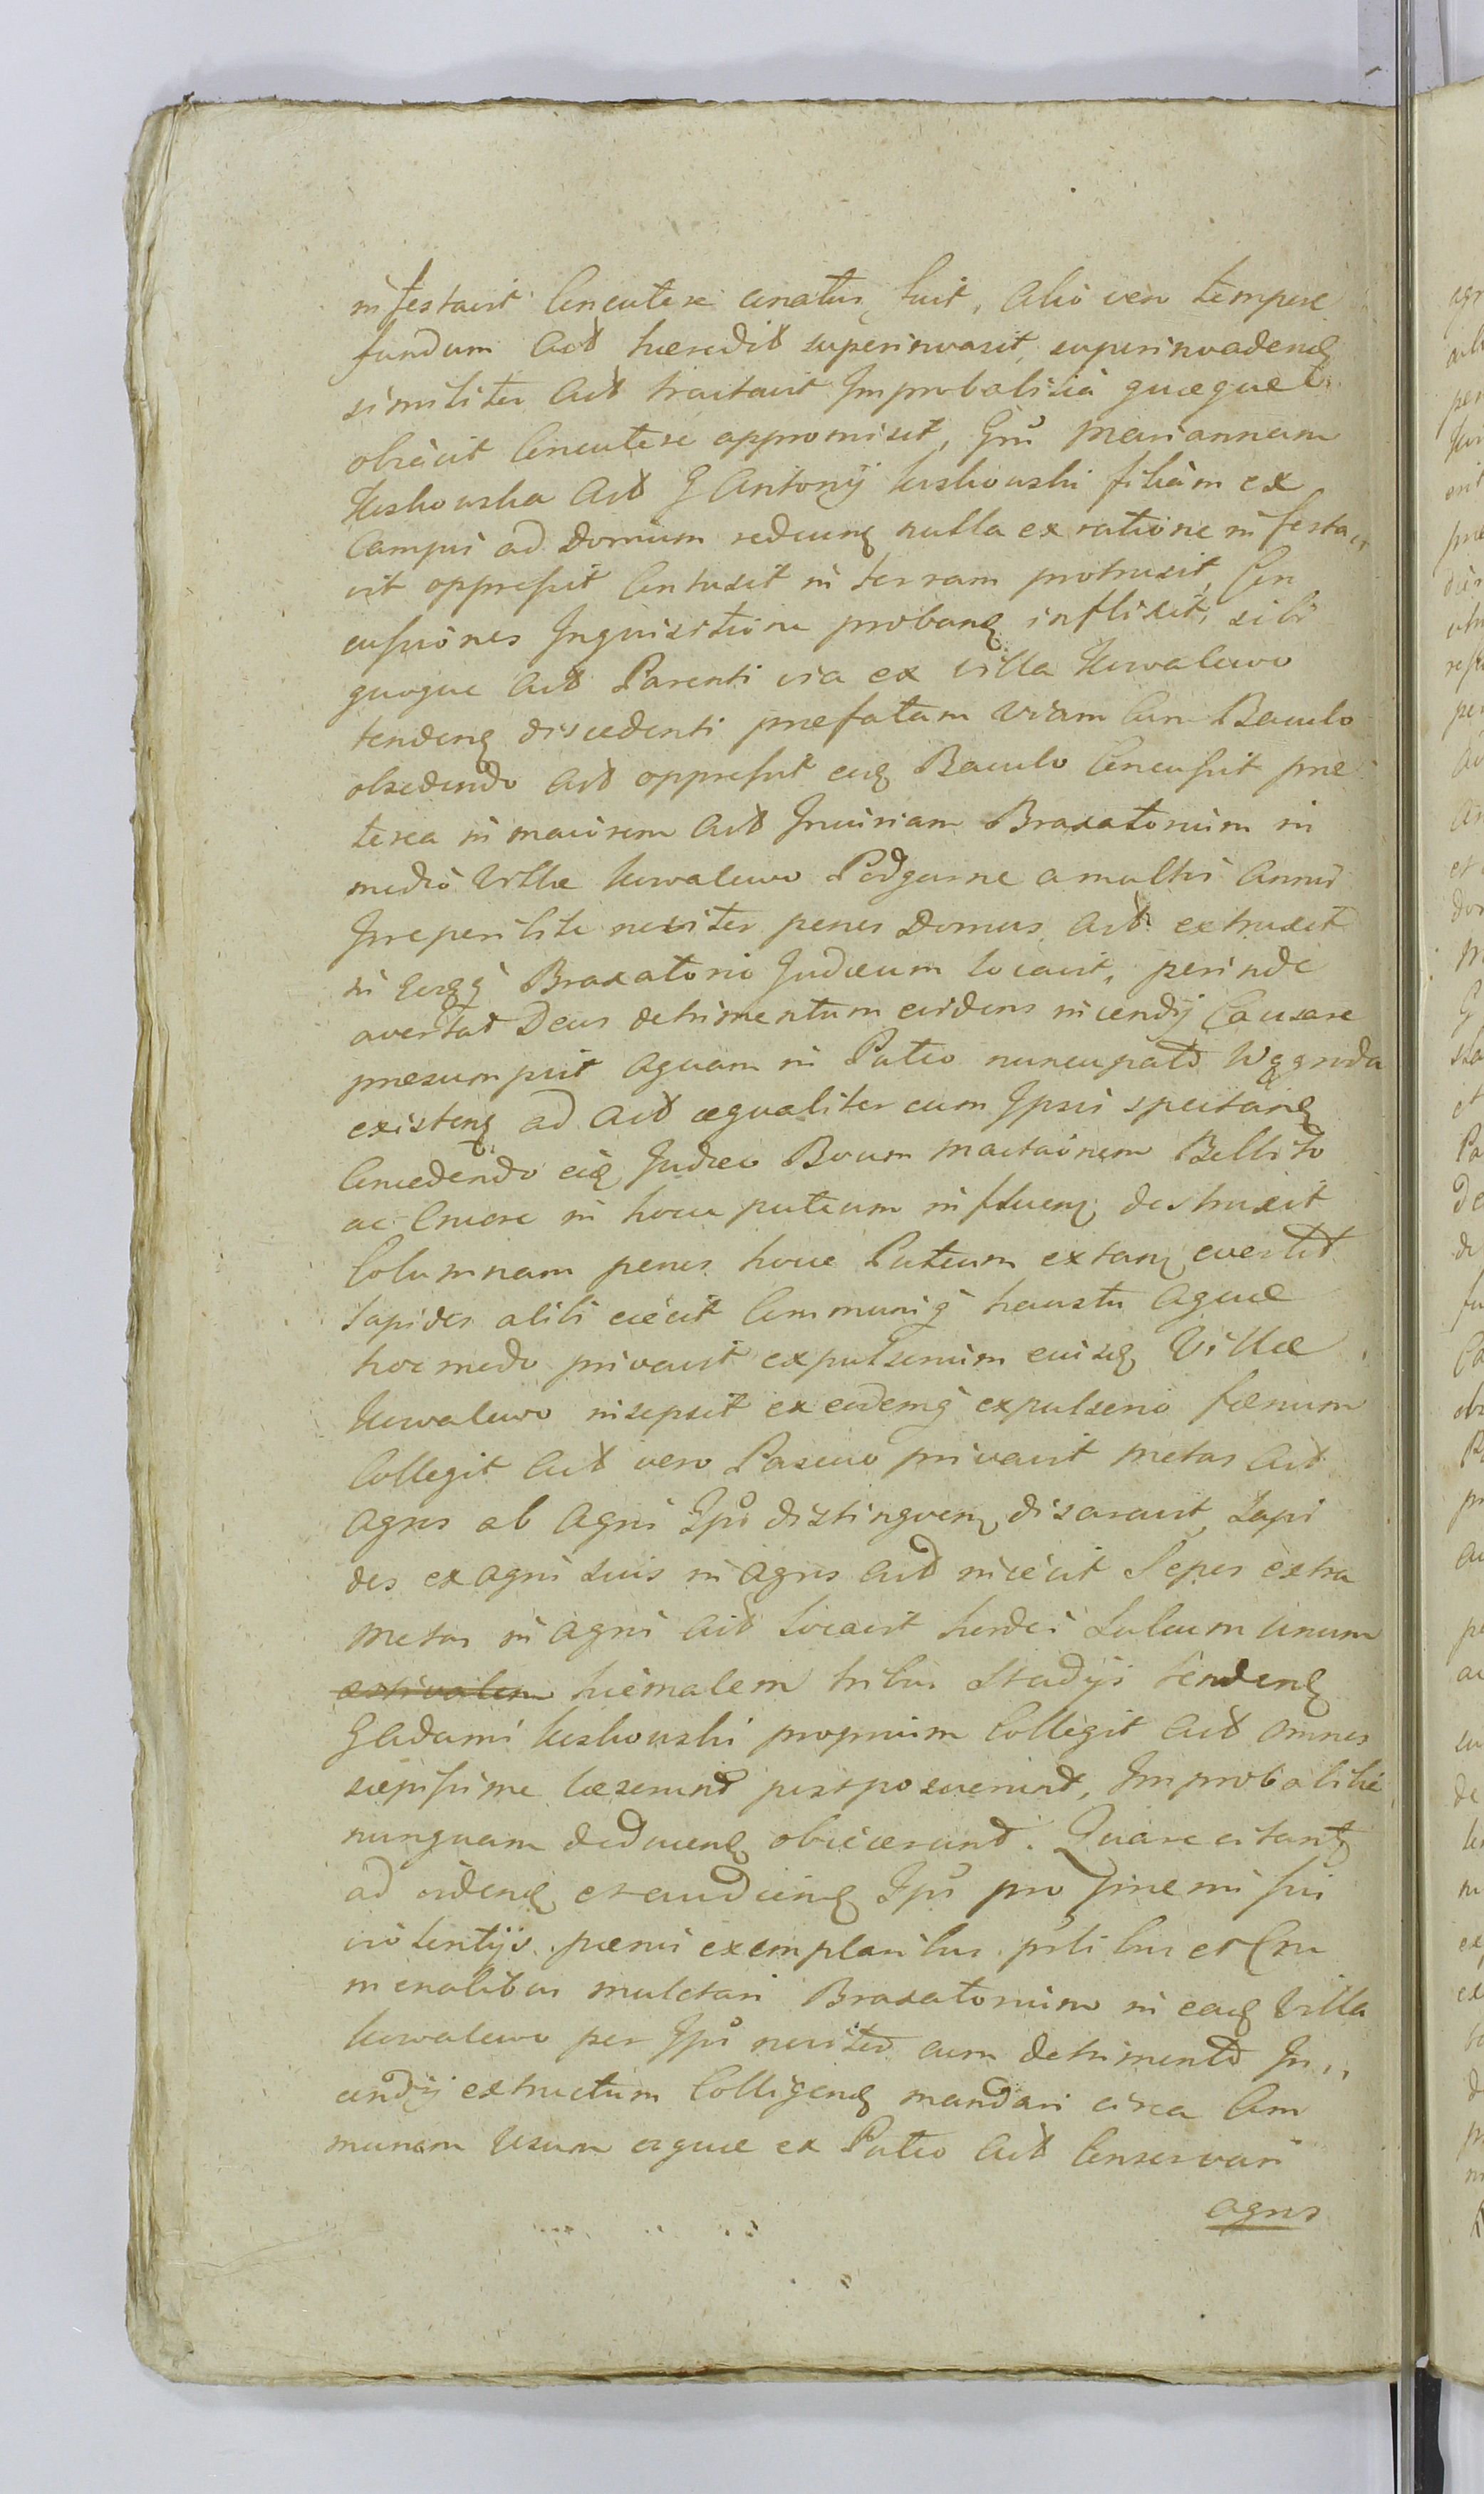 infestavit Concutere conatus fuit, alio vero tempore
fundum Actt hæredit superinvasit, superinvadend
similiter Actt tractavit Improbalia quæque
obiecit Concutere appromisit, Gnm Mariannam
Kuskowska Actt G Antonij Kuskowski filiam ex
Campis ad Domum reducem nulla ex ratione infesta,,
vit oppressit Contusit in terram protrusit, Con
cussiones Inquisitione proband inflixit, sibi
quoque Actt Parenti via ex Villa Kowalewo
tendend discedenti præfatam viam cum Baculo
obsedendo Actt oppressit eumq Baculo Concussit præ
terea in maiorem Actt Iniuriam Braxatorium in
medio Villæ Kowalewo Podgurne a multis Annis
Irreperibile noviter penes Domus Actt extruxit
in eoq Braxatorio Judæum locavit, perinde
avertat Deus detrimentum evidens incendij Causare
præsumpsit aquam in Puteo nuncupato Wągroda
existen ad Actt æqualiter cum Ipsis spectan
Concedendo eid Judæo Boum mactationem Bellito
ac Cruore in hocce puteum influen destruxit
Columnam penes hocce Puteum extan evertit
lapides alibi eiecit Communiq haustu Aquæ
hoc modo privavit expulsorium eiusd Villæ
Kowalewo insepsit ex eodemq expulsorio fœnum
Collegit Actt vero Pascuo privavit metas Actt
agros ab Agris Ipsi distinguen disaravit, Lapi
des ex agris suis in agros Actt iniecit Sepes extra
metas in agris Actt locavit hordei Sulcum unum
æstivalem hiemalem tribus Stadijs tendend
G Adami Kuskowski proprium Collegit Actt omnes
sæpissime læserunt postposuerunt, Improbalia
nunquam deducend obiecerunt. Quare citant
ad videnda et audiend Ipsi pro præmissis
violentijs pœnis exemplaribus pstibus et Cri
minalibus mulctari Braxatorium in ead Villa
Kowalewo per Ipsi noviter cum detrimento In,,
cendij extructum Colligend mandari circa Com
munem Usum aquæ ex Puteo Actt Conservari
agros